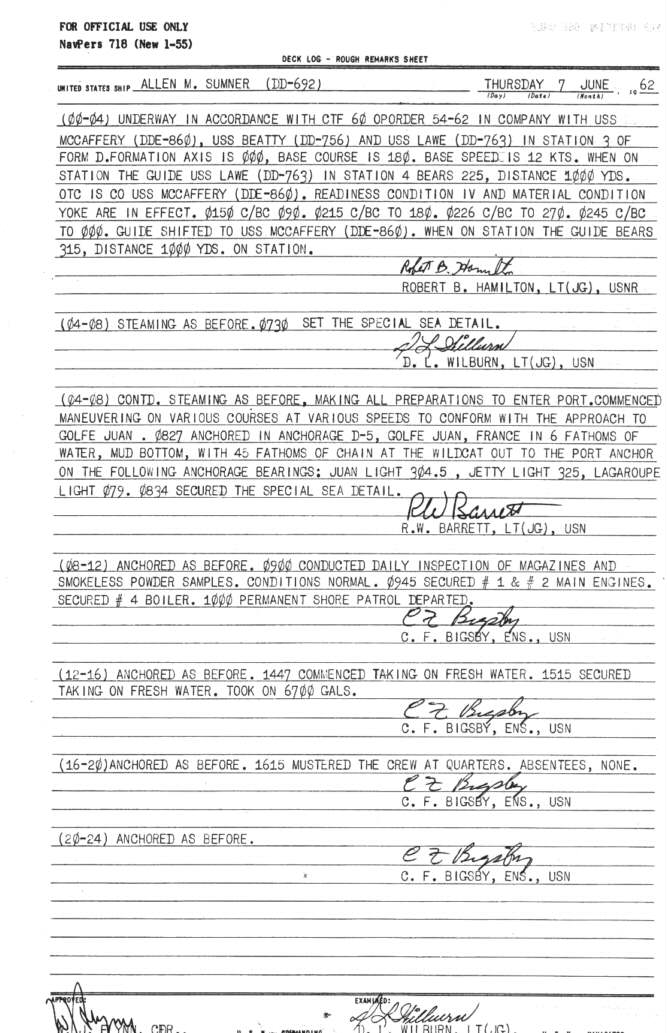 FOR OFFICIAL USE ONLY
NavPers 718 (New 1-55)
DECK LOG - ROUGH REMARKS SHEET
UNITED STATES SHIP ALLEN M. SUMNER (DD-692) THURSDAY 7 JUNE 19 62
(Day) (Date) (Month)
(ØØ-Ø4) UNDERWAY IN ACCORDANCE WITH CTF 6Ø OPORDER 54-62 IN COMPANY WITH USS
MCCAFFERY (DDE-86Ø), USS BEATTY (DD-756) AND USS LAWE (DD-763) IN STATION 3 OF
FORM D.FORMATION AXIS IS ØØØ, BASE COURSE IS 18Ø. BASE SPEED IS 12 KTS. WHEN ON
STATION THE GUIDE USS LAWE (DD-763) IN STATION 4 BEARS 225, DISTANCE 1ØØØ YDS.
OTC IS CO USS MCCAFFERY (DDE-86Ø). READINESS CONDITION IV AND MATERIAL CONDITION
YOKE ARE IN EFFECT. Ø15Ø C/BC Ø9Ø. Ø215 C/BC TO 18Ø. Ø226 C/BC TO 27Ø. Ø245 C/BC
TO ØØØ. GUIDE SHIFTED TO USS MCCAFFERY (DDE-86Ø). WHEN ON STATION THE GUIDE BEARS
315, DISTANCE 1ØØØ YDS. ON STATION.
Robert B. Hamilton
ROBERT B. HAMILTON, LT(JG), USNR
(Ø4-Ø8) STEAMING AS BEFORE. Ø73Ø SET THE SPECIAL SEA DETAIL.
D L Wilburn
D. L. WILBURN, LT(JG), USN
(Ø4-Ø8) CONTD. STEAMING AS BEFORE, MAKING ALL PREPARATIONS TO ENTER PORT.COMMENCED
MANEUVERING ON VARIOUS COURSES AT VARIOUS SPEEDS TO CONFORM WITH THE APPROACH TO
GOLFE JUAN . Ø827 ANCHORED IN ANCHORAGE D-5, GOLFE JUAN, FRANCE IN 6 FATHOMS OF
WATER, MUD BOTTOM, WITH 45 FATHOMS OF CHAIN AT THE WILDCAT OUT TO THE PORT ANCHOR
ON THE FOLLOWING ANCHORAGE BEARINGS: JUAN LIGHT 3Ø4.5 , JETTY LIGHT 325, LAGAROUPE
LIGHT Ø79. Ø834 SECURED THE SPECIAL SEA DETAIL.
RW Barrett
R.W. BARRETT, LT(JG), USN
(Ø8-12) ANCHORED AS BEFORE. Ø9ØØ CONDUCTED DAILY INSPECTION OF MAGAZINES AND
SMOKELESS POWDER SAMPLES. CONDITIONS NORMAL. Ø945 SECURED # 1 & # 2 MAIN ENGINES.
SECURED # 4 BOILER. 1ØØØ PERMANENT SHORE PATROL DEPARTED.
C F Bigsby
C. F. BIGSBY, ENS., USN
(12-16) ANCHORED AS BEFORE. 1447 COMMENCED TAKING ON FRESH WATER. 1515 SECURED
TAKING ON FRESH WATER. TOOK ON 67ØØ GALS.
C F Bigsby
C. F. BIGSBY, ENS., USN
(16-2Ø)ANCHORED AS BEFORE. 1615 MUSTERED THE CREW AT QUARTERS. ABSENTEES, NONE.
C F Bigsby
C. F. BIGSBY, ENS., USN
(2Ø-24) ANCHORED AS BEFORE.
C F Bigsby
C. F. BIGSBY, ENS., USN
APPROVED: EXAMINED:
D L Wilburn
CDR., COMMANDING D. L. WILBURN, LT(JG)